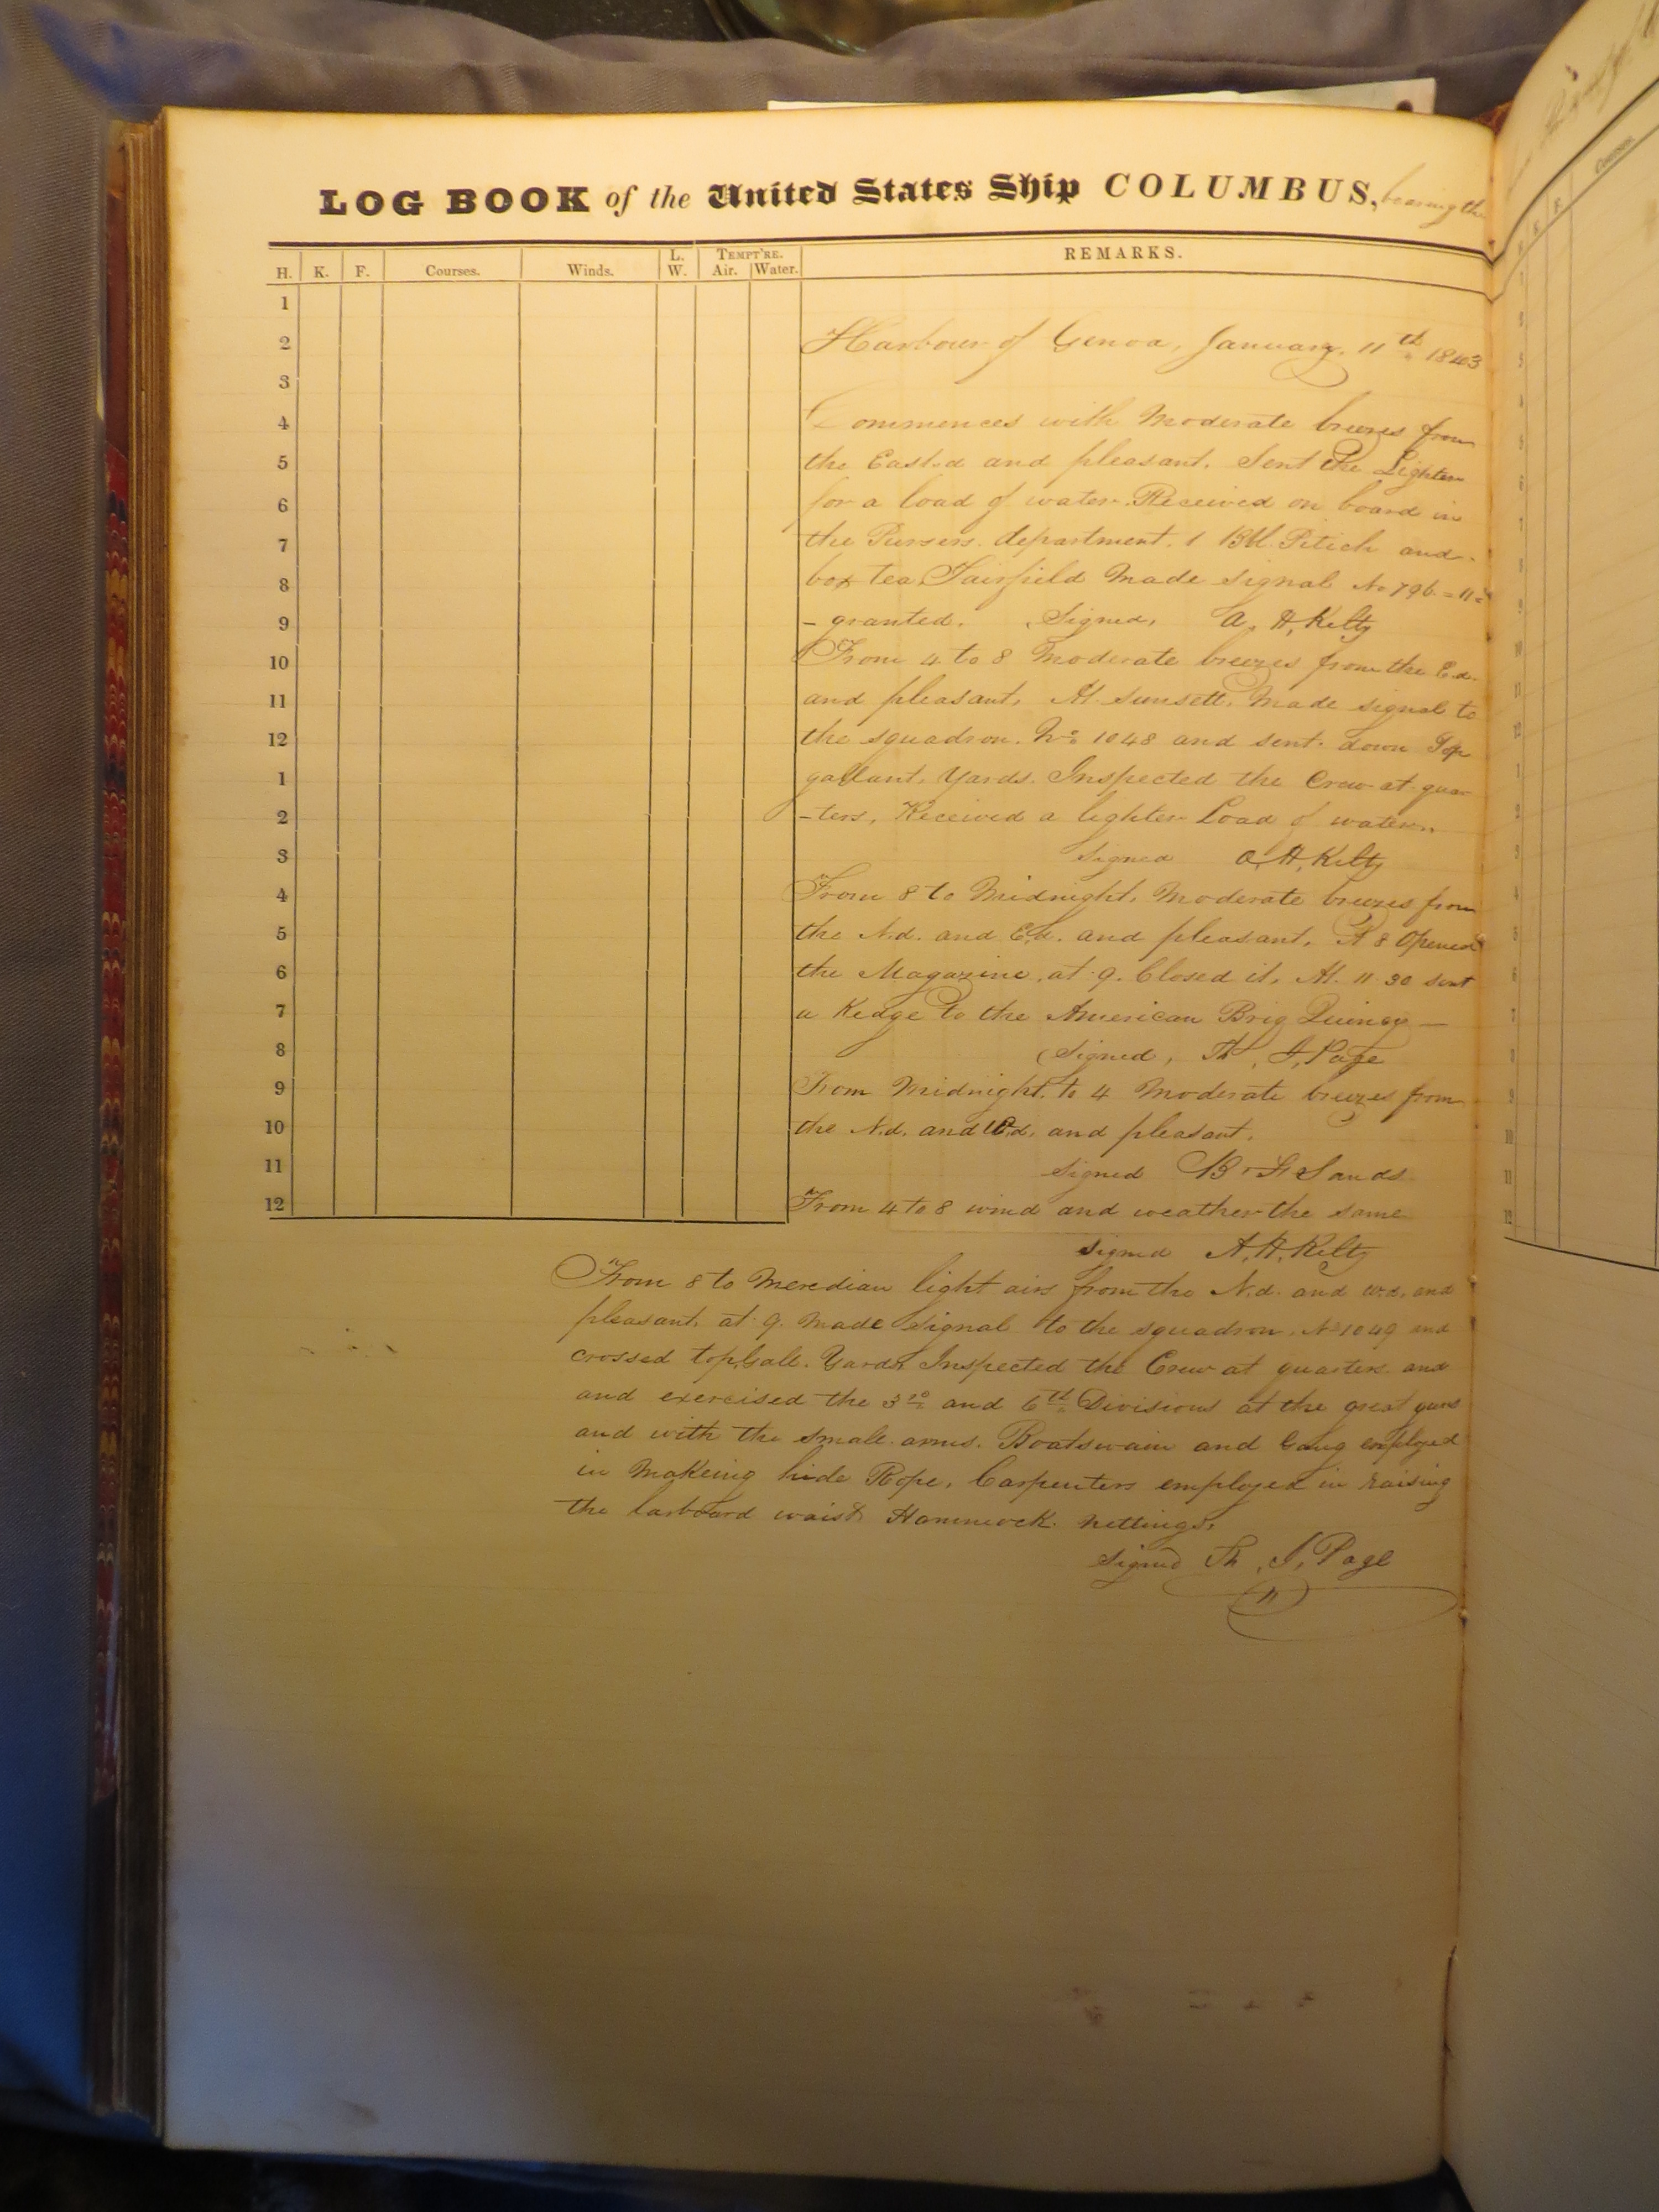 LOG BOOK of the United States Ship COLUMBUS, bearing the
H. K. F. Courses. Winds. L. W. TEMPT'RE. Air. Water. REMARKS.
1
2 Harbour of Genoa, January, 11th 1843
3
4 Commences with Moderate breezes from
5 the East.d and pleasant. Sent the Lighter
6 for a load of water. Received on board in
7 the Pursers. department. 1 Bbl. Pitch and
8 box tea Fairfield Made signal No 796 = 11
9 - granted. Signed, A. H. Kilty
10 From 4 to 8 Moderate breezes from the E.d.
11 and pleasant, At. sunsett. Made signal to
12 the squadron. No. 1048 and sent. down Top
1 gallant, Yards. Inspected the Crew at quar
2 -ters, Received a lighter Load of water..
3 Signed A. H. Kilty
4 From 8 to Midnight. Moderate breezes from
5 the N.d. and E.d. and pleasant. At 8 Opened
6 the Magazine, at 9. Closed it, At. 11.30 sent
7 a Kedge to the American Brig Quincy —
8 (Signed, Th. J. Page
9 From Midnight. to 4 Moderate breezes from
10 the N.d. and W.d. and pleasant.
11 Signed B. F. Sands
12 From 4 to 8 wind and weather the same
Signed A. H. Kilty
From 8 to Meredian light airs from the N.d. and W.d. and
pleasant, at 9. Made Signal to the squadron, No 1049 and
crossed top,Gall. Yards Inspected the Crew at quarters and
and exercised the 3rd and 6th Divisions at the great guns
and with the small arms. Boatswain and Gang employed
in Makeing hide Rope, Carpenters employed in raising
the larboard waist Hammock. nettings,
Signed Th. J. Page
Courses.